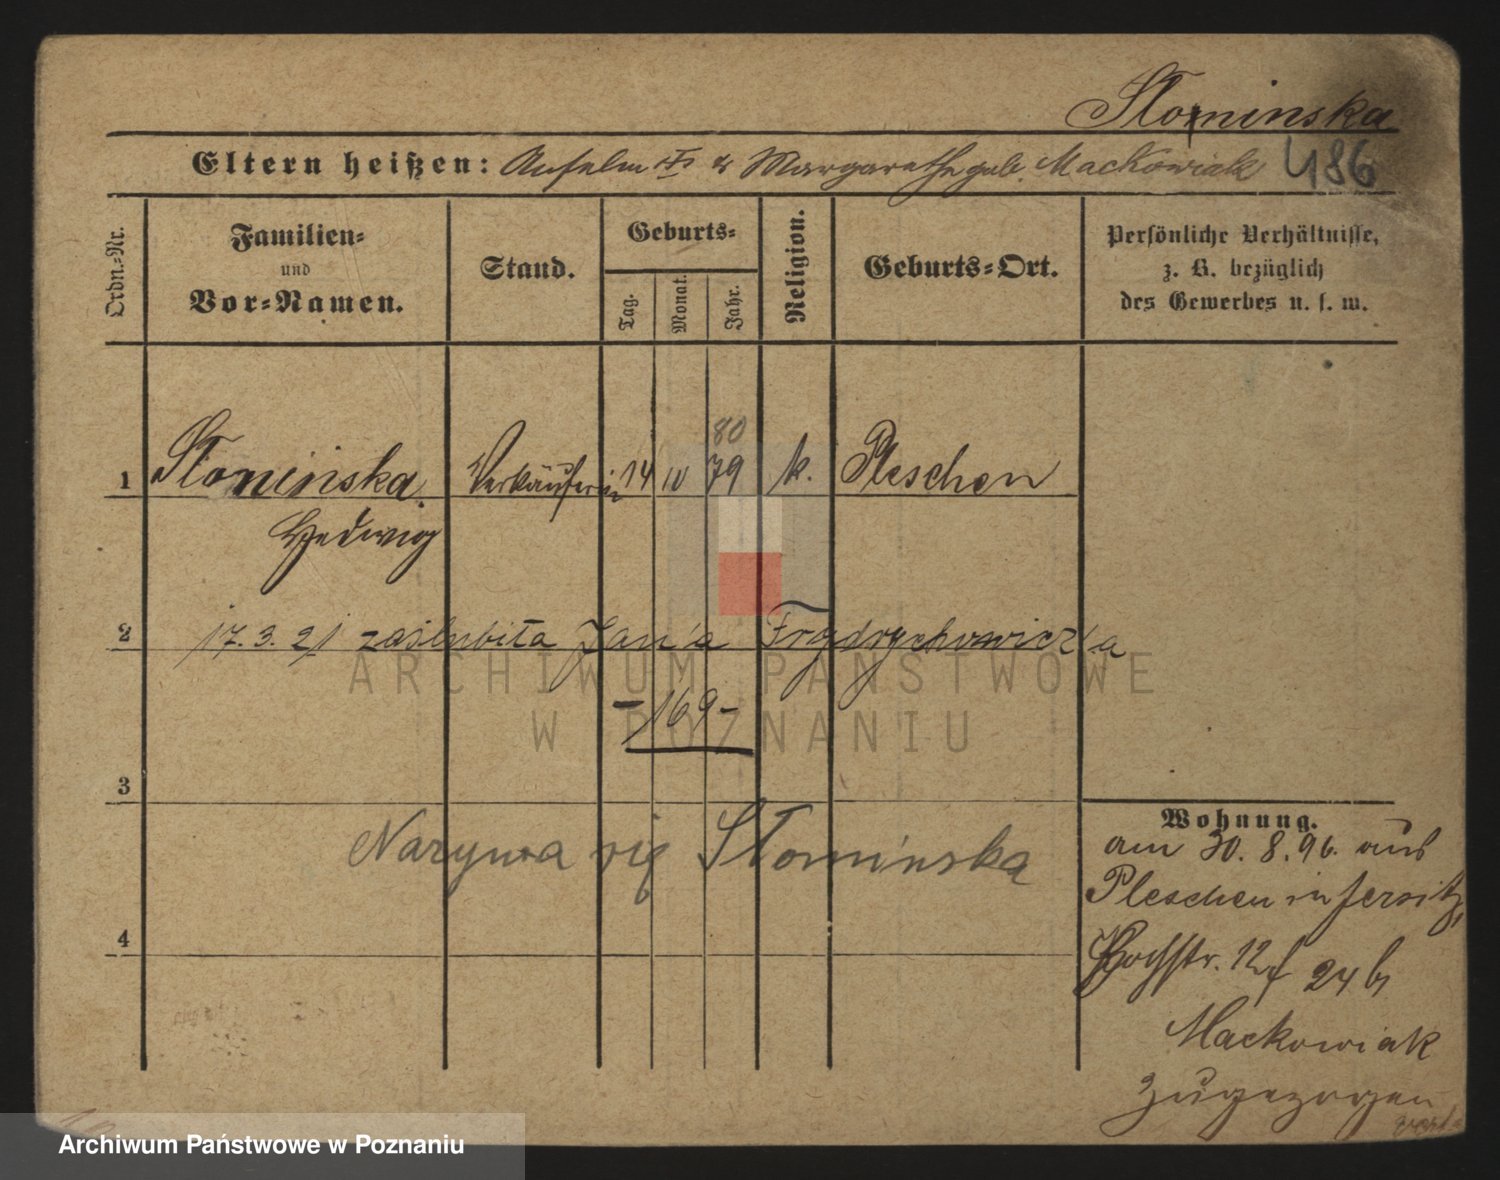 Słominska
Eltern heißen: Anselm u. Margarethe geb. Mackowiak 486
Ordn.-Nr.
Familien-
und
Vor-Namen.
Stand.
Geburts-
Tag.
Monat.
Jahr.
Religion.
Geburts-Ort.
Persönliche Verhältnisse,
z. B. bezüglich
des Gewerbes u. s. w.
80
1 Słominska Verkäuferin 14 10 79 k. Pleschen
Hedwig
2 17. 3. 21 zaślubiła Jan'a Frydrychowicz'a
-169-
3
Nazywa się Słomińska
4
Wohnung.
am 30. 8. 96. aus
Pleschen in Jersitz,
Hochstr. 12 24 b
Mackowiak
zugezogen
ARCHIWUM PAŃSTWOWE
W POZNANIU
Archiwum Państwowe w Poznaniu